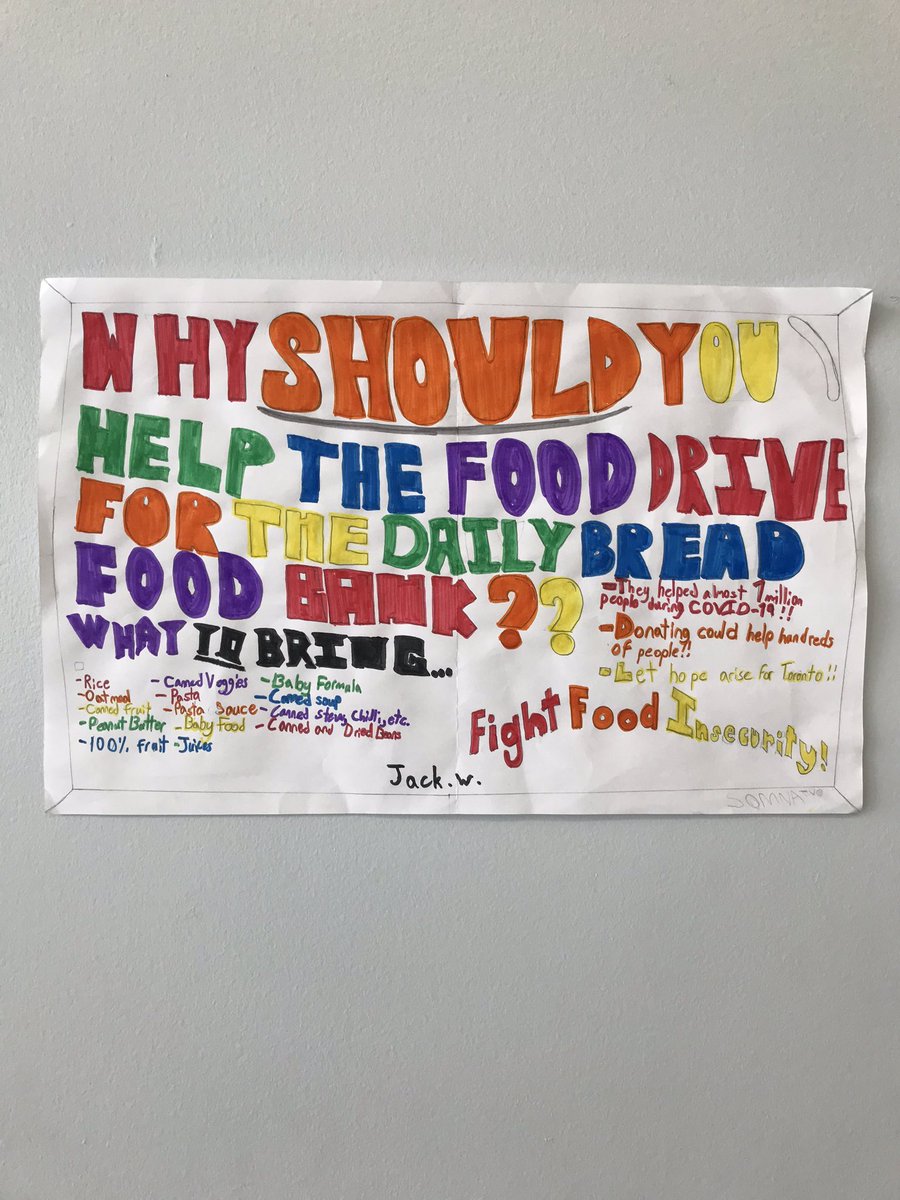 WHY SHOULD YOU
HELP THE FOOD DRIVE
FOR THE DAILY BREAD
FOOD BANK ??
-They helped almost 1 million
people during COVID-19!!
-Donating could help hundreds
of people?!
-Let hope arise for Toronto!!
WHAT TO BRING...
-Rice -Canned Veggies -Baby Formula
-Oatmeal -Pasta -Canned soup
-Canned fruit -Pasta Sauce -Canned Stew, Chilli, etc.
-Peanut Butter -Baby Food -Canned and Dried Beans
-100% fruit -Juices
Fight Food Insecurity!
Jack.W.